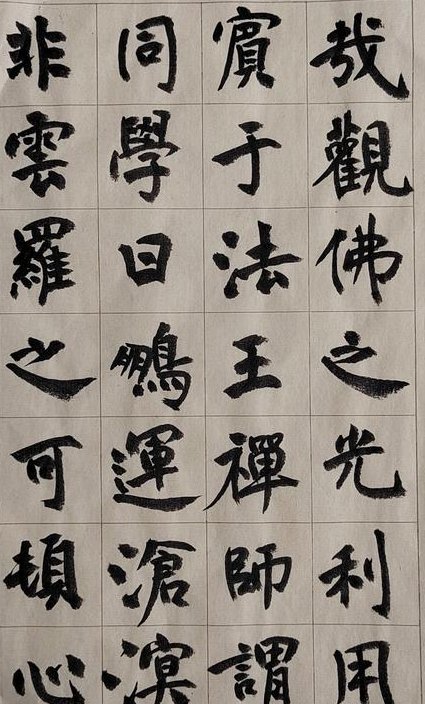 哉觀佛之光利用
賓于法王禪師謂
同學曰鵬運滄溟
非雲羅之可頓心